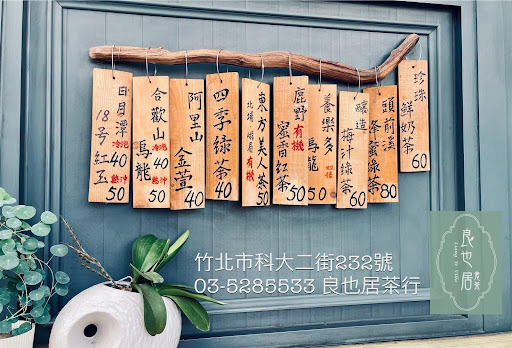 日月潭
18號紅玉
冷泡
40
熱沖
50
合歡山
烏龍
冷泡
40
熱沖
50
阿里山
金萱
40
四季綠茶
40
東方美人茶
北埔 峨眉 有機
50
鹿野有機
蜜香紅茶
50
養樂多
烏龍
50
釀造
梅汁綠茶
60
頭前溪
蜂蜜綠茶
80
珍珠
鮮奶茶
60
竹北市科大二街232號
03-5285533 良也居茶行
良也居